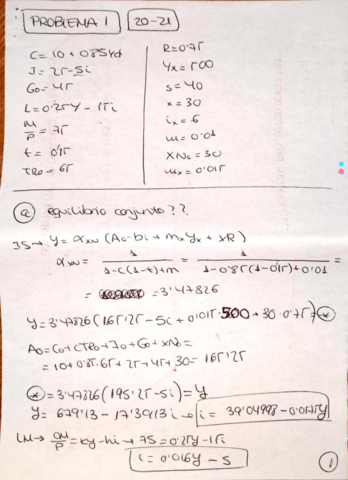 PROBLEMA 1 20-21
C = 10 + 0'85Yd
I = 25 - 5i
G₀ = 45
L = 0'25Y - 15i
M/P = 75
t = 0'15
TR₀ = 65
R = 0'75
Yx = 500
s = 40
x = 30
ix = 6
m = 0'01
XN₀ = 30
mx = 0'015
a) equilibrio conjunto??
IS → Y = αXN (A₀ - bi + mxYx + xR)
αXN = 1 / 1-c(1-t)+m = 1 / 1-0'85(1-0'15)+0'01 =
= 3'47826
Y = 3'47826 (165'25 - 5i + 0'015·500 + 30·0'75) = *
A₀ = C₀ + cTR₀ + I₀ + G₀ + XN₀ =
= 10 + 0'85·65 + 25 + 45 + 30 = 165'25
* = 3'47826 (195'25 - 5i) = Y
Y = 679'13 - 17'3913i → i = 39'04998 - 0'0575Y
LM → M/P = kY - hi → 75 = 0'25Y - 15i
i = 0'016Y - 5
1